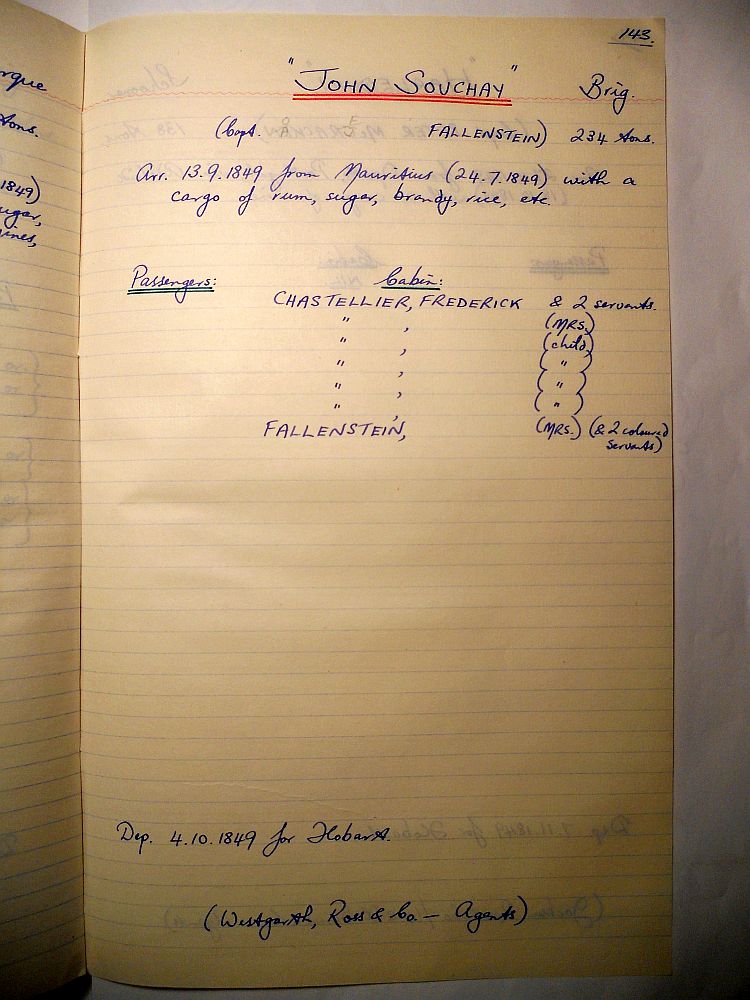 rque
tons.
1849)
ugar,
ines,
143.
"JOHN SOUCHAY" Brig.
(Capt. FALLENSTEIN) 234 tons.
Arr. 13.9.1849 from Mauritius (24.7.1849) with a
cargo of rum, sugar, brandy, rice, etc.
Passengers: Cabin:
CHASTELLIER, FREDERICK & 2 servants.
" , (MRS.)
" , (child)
" , ( " )
" , ( " )
" , ( " )
FALLENSTEIN, (MRS.) (& 2 coloured
servants)
Dep. 4.10.1849 for Hobart.
(Westgarth, Ross & Co. — Agents)